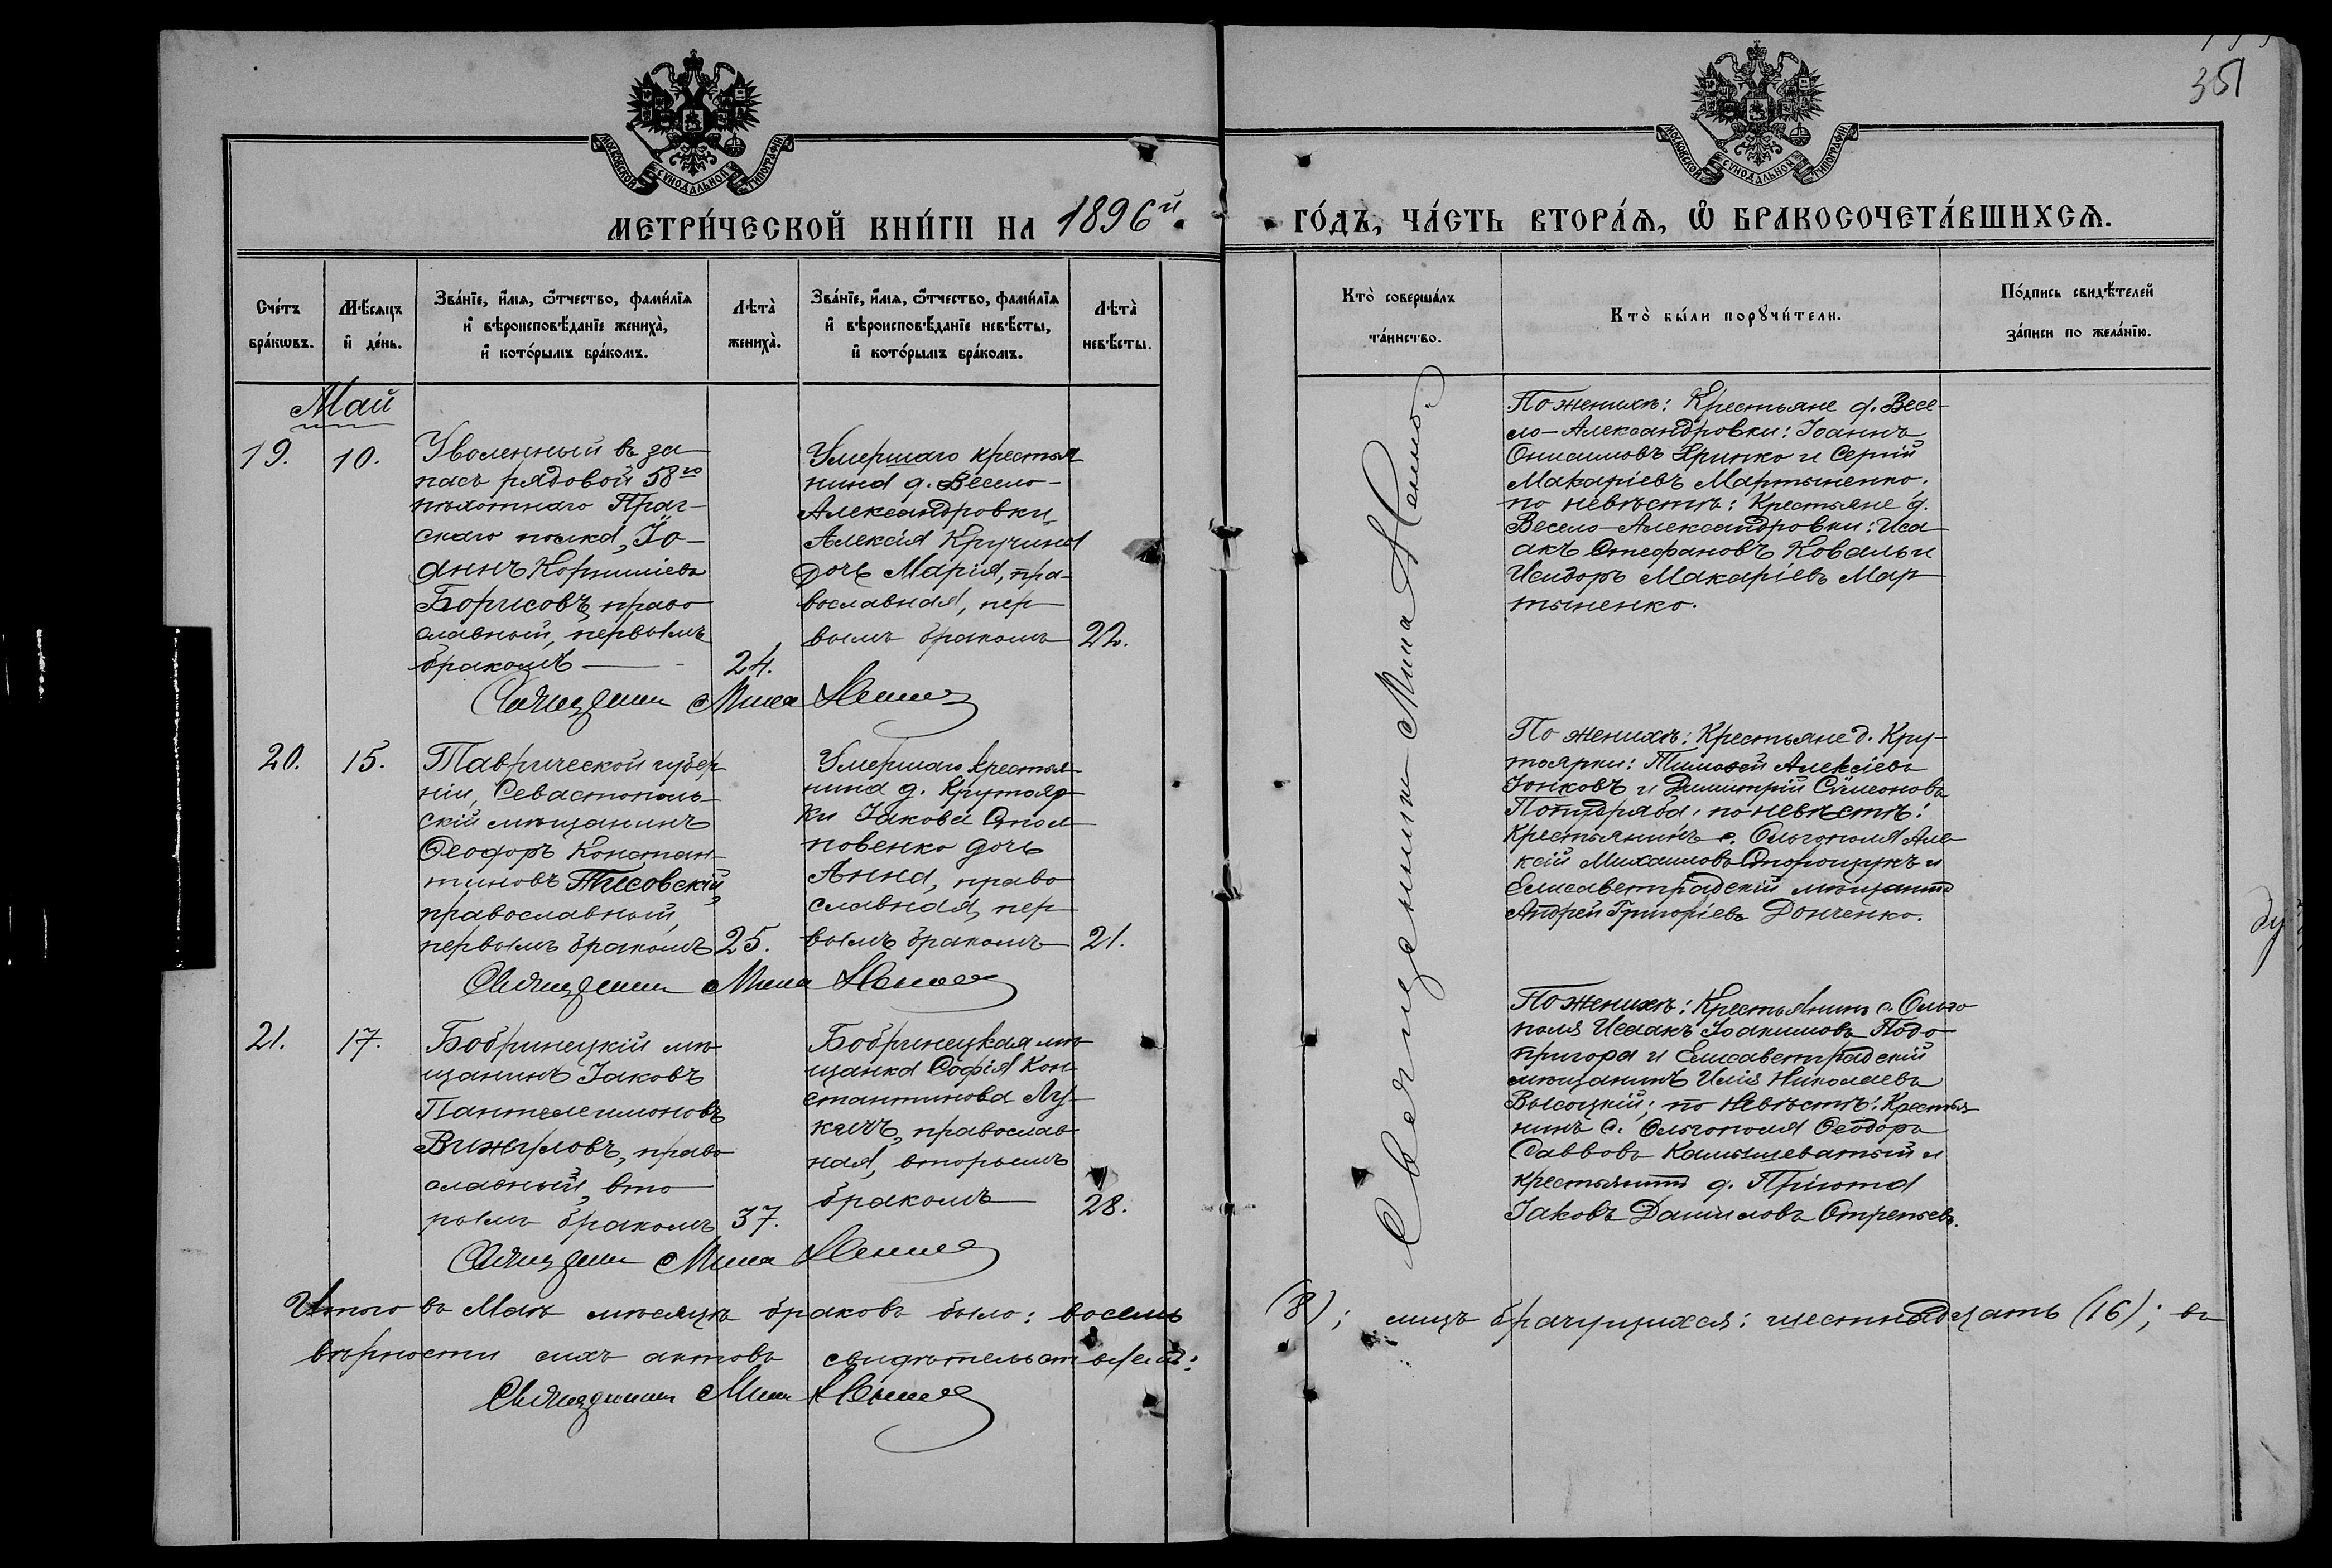 351
МОСКОВСКОЙ СѴНОДАЛЬНОЙ ТИПОГРАФІИ
МОСКОВСКОЙ СѴНОДАЛЬНОЙ ТИПОГРАФІИ
МЕТРИ́ЧЕСКОЙ КНИ́ГИ НА 1896й
ГО́ДЪ, ЧА́СТЬ ВТОРА́Ѧ, Ѽ БРАКОСОЧЕТА́ВШИХСѦ.
Сче́тъ бра́кѡвъ.
Мѣ́сѧцъ и҆ де́нь.
Зва́нїе, и҆́мѧ, ѻ҆́тчество, фами́лїѧ
и҆ вѣроисповѣ́данїе жениха̀,
и҆ кото́рымъ бра́комъ.
Лѣта̀ жениха̀.
Зва́нїе, и҆́мѧ, ѻ҆́тчество, фами́лїѧ
и҆ вѣроисповѣ́данїе невѣ́сты,
и҆ кото́рымъ бра́комъ.
Лѣта̀ невѣ́сты.
Кто̀ соверша́лъ та́инство.
Кто̀ бы́ли порꙋчи́тели.
По́дпись свидѣ́телей
за́писи по жела́нїю.
Май
19.
10.
Уволенный въ за-
пасъ рядовой 58го
пѣхотнаго Праг-
скаго полка, Іо-
аннъ Корниліевъ
Борисовъ, право
славный, первымъ
бракомъ
24.
Умершаго крестья
нина д. Весело-
Александровки
Алексія Кручина
дочь Марія, пра-
вославная, пер
вымъ бракомъ
22.
Священникъ Мина
По женихѣ: Крестьяне д. Весе-
ло-Александровки: Іоаннъ
Онисимовъ Хринко и Сергій
Макаріевъ Мартыненко.
по невѣстѣ: Крестьяне д.
Весело-Александровки: Иса
акъ Стефановъ Коваль и
Исидоръ Макаріевъ Мар
тыненко.
Священникъ Мина
20.
15.
Таврической губер
ніи, Севастополь-
скій мѣщанинъ
Ѳеодоръ Констан-
тиновъ Тисовскій,
православный,
первымъ бракомъ
25.
Умершаго крестья
нина д. Крутояр
ки Іакова
повенко дочь
Анна, право
славная, пер
вымъ бракомъ
21.
Священникъ Мина
По женихѣ: Крестьяне д. Кру-
тоярки: Тимоѳей Алексіевъ
Іонковъ и Димитрій Сѵмеоновъ
по невѣстѣ:
Крестьянинъ с. Ольгополя Але
ксій Михаиловъ Сторощукъ и
Елисаветградскій мѣщанинъ
Андрей Григоріевъ Донченко.
21.
17.
Бобринецкій мѣ
щанинъ Іаковъ
Пантелеимоновъ
Вижуловъ, право
славный, вто
рымъ бракомъ
37.
Бобринецкая мѣ
щанка Софія Кон-
стантинова Лу-
кичъ, православ
ная, вторымъ
бракомъ
28.
Священникъ Мина
По женихѣ: Крестьянинъ с. Ольго
поля Исаакъ Іоакимовъ Подо-
пригора и Елисаветградскій
мѣщанинъ Илія Николаевъ
Высоцкій; по невѣстѣ: Крестья
нинъ с. Ольгополя Ѳеодоръ
Саввовъ Камышеватый и
крестьянинъ д. Пріюта
Іаковъ Даніиловъ Отрепьевъ.
Итого въ Маѣ мѣсяцѣ браковъ было: восемь
(8); лицъ брачущихся: шестнадцать (16); въ
вѣрности сихъ актовъ свидѣтельствуемъ:
Священникъ Мина